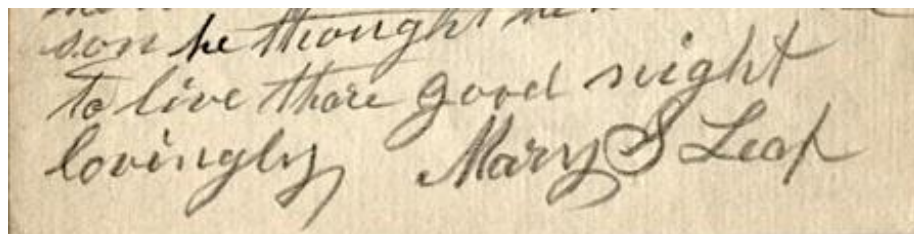 son he thought he
to live thare good night
lovingly Mary S Leap